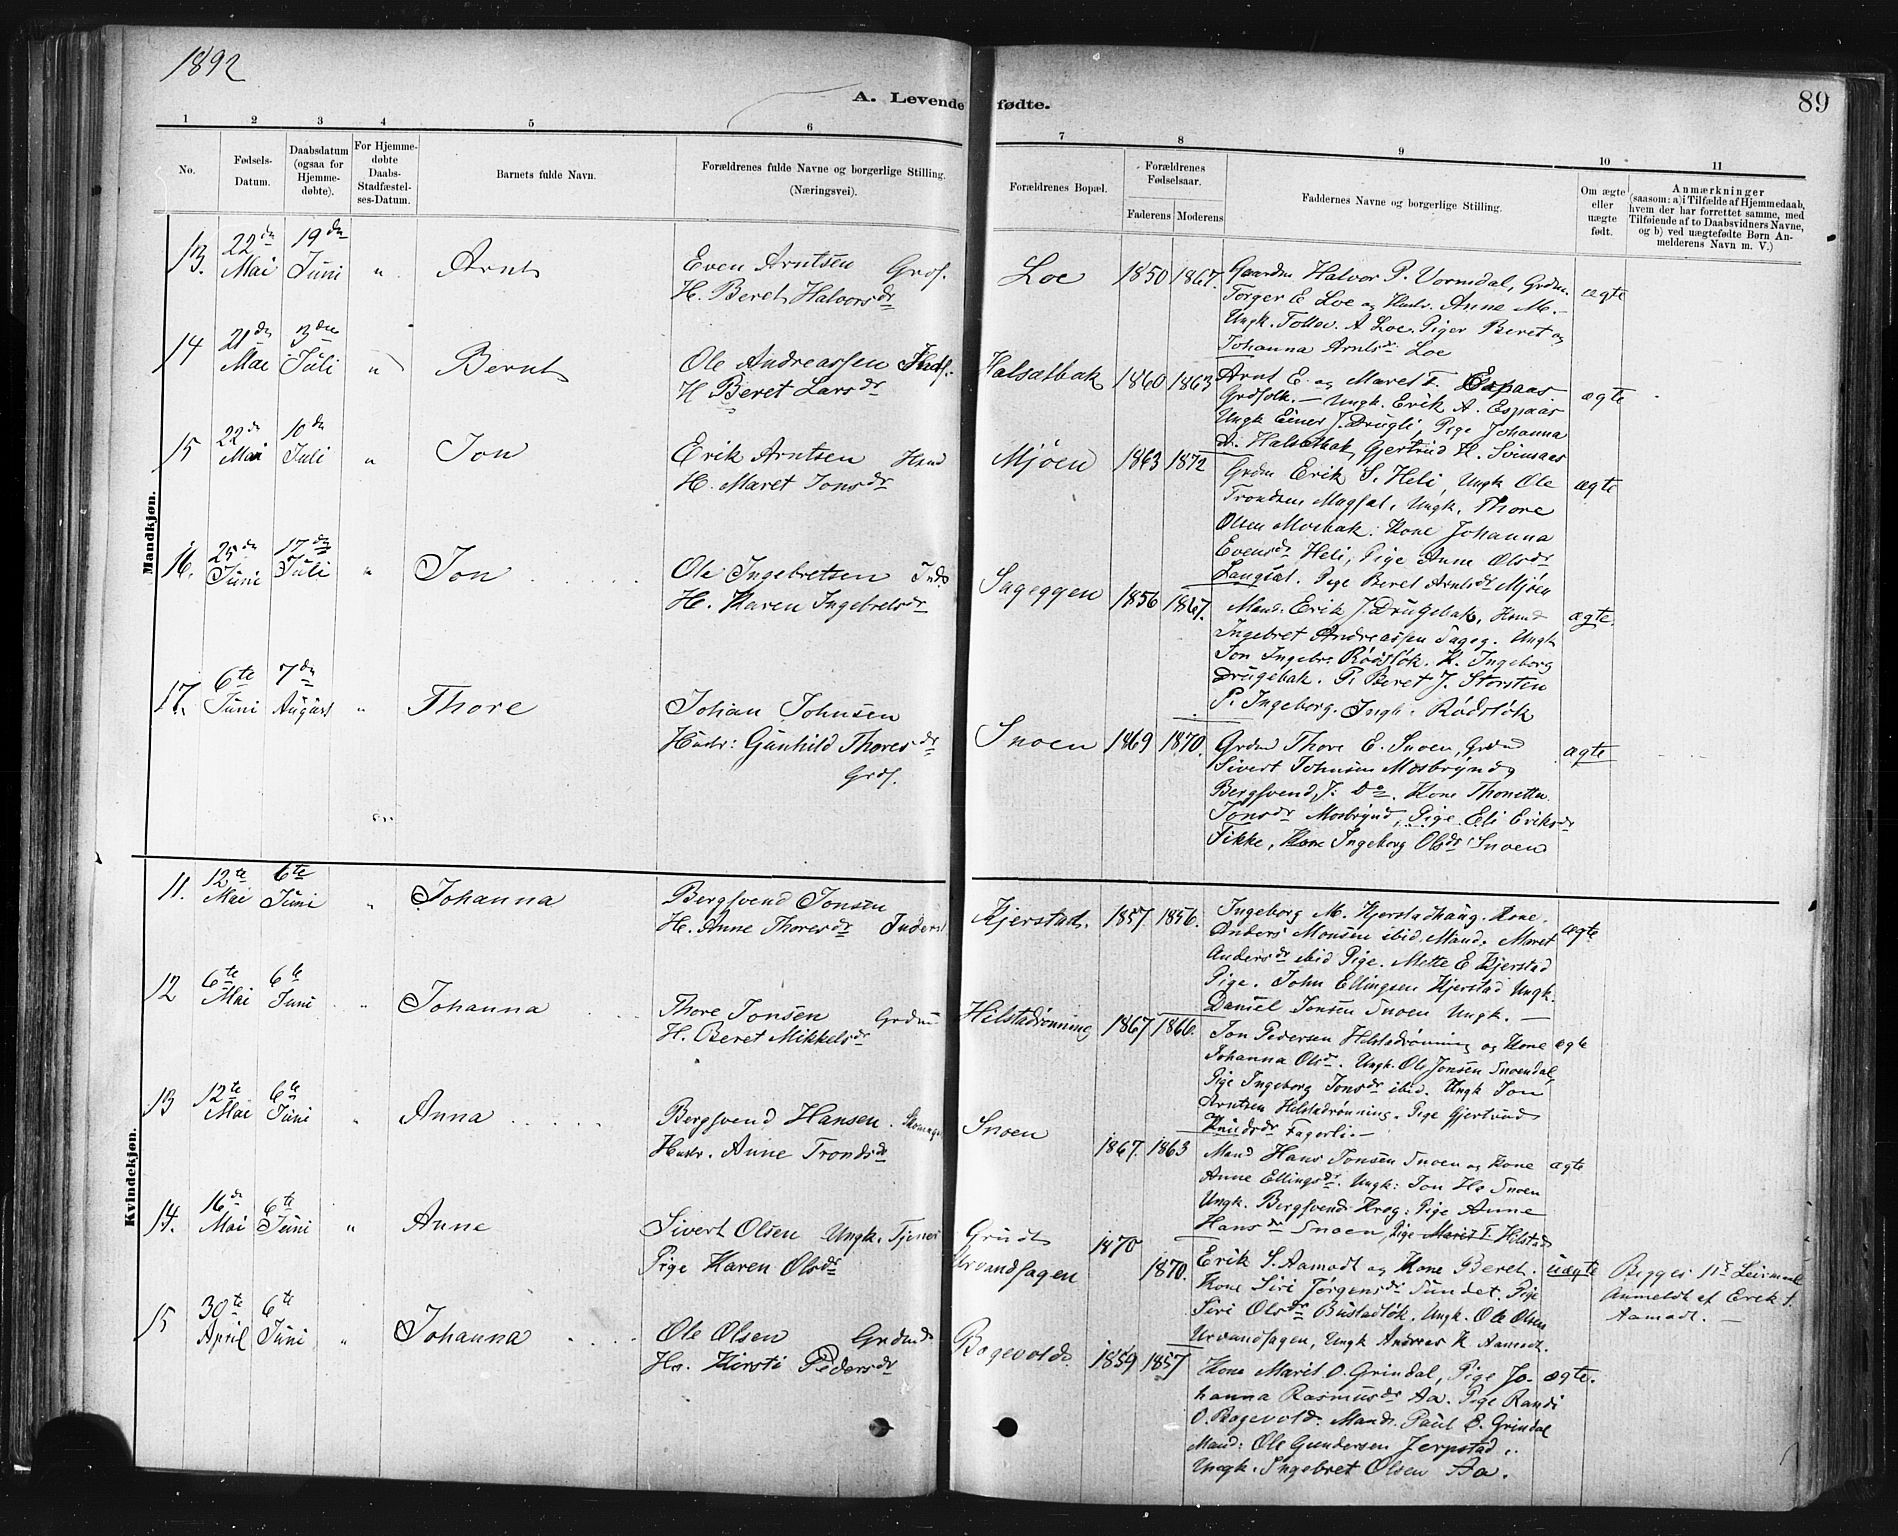 1892
A. Levende fødte.
89
1 2 3 4 5 6 7 8 9 10 11
No.
Fødsels-Datum.
Daabsdatum (ogsaa for Hjemme-døbte).
For Hjemme-døbte Daabs-Stadfæstel-ses-Datum.
Barnets fulde Navn.
Forældrenes fulde Navne og borgerlige Stilling. (Næringsvei).
Forældrenes Bopæl.
Forældrenes Fødselsaar.
Faderens Moderens
Faddernes Navne og borgerlige Stilling.
Om ægte eller uægte født.
Anmærkninger (saasom: a) i Tilfælde af Hjemmedaab, hvem der har forrettet samme, med Tilføiende af to Daabsvidners Navne, og b) ved uægtefødte Børn An-melderens Navn m. V.)
Mandkjøn.
13. 22dn Mai 19dn Juni " Arnt
Even Arntsen Grdf.
H. Beret Halvorsdr
Loe 1850 1867.
Gaardm Halvor P. Vormdal, Grdm.
Torger E Loe og Hustr. Anne M. —
Ungk. Tollev. A Loe. Piger Beret og
Johanna Arntsdr Loe
ægte
14 21dn Mai 3dn Juli " Bernt
Ole Andreassen Indf.
H Beret Larsdr
Halsætbak 1860 1863
Arnt E. og Maret T. Espaas
Grdfolk. — Ungk. Erik A. Espaas
Ungk Einer J. Drugli, Pige Johanna
A. Halsætbak Gjertrud H. Svinsaas
ægte
15 22dn Mai 10dn Juli " Jon
Erik Arntsen
H. Maret Jonsdr
Mjøen 1863 1872
Grdm Erik S. Heli, Ungk Ole
Trondsen Mogsæt, Ungk. Thore
Olsen Moebak: Kone Johanna
Evensdr Heli, Pige Anne Olsdr
Langsæt. Pige Beret Arntsdr Mjøen
ægte
16. 25dn Juni 17dn Juli " Jon
Ole Ingebretsen Inds
H. Karen Ingebretsdr
Sageggen 1856 1867.
Mand. Erik J. Drugebak,
Ingebret Andreassen Sageg. Ungk
Jon Ingebr. Rødsløk. K. Ingeborg
Drugebak. P. Beret J. Storsten
P. Ingeborg. Ingb. Rødsløk
ægte.
17. 6te Juni 7dn August " Thore
Johan Johnsen
Hustr: Gunhild Thoresdr
Grdf.
Snoen 1869 1870.
Grdmd Thore E. Snoen, Grdmd
Sivert Johnsen Mosbrynd
Bergsvend J. Do. Kone Thonette
Jonsdr Mosbrynd, Pige Eli Eriksdr
Fikke, Kone Ingeborg Olsdr Snoen
ægte
Kvindekjøn.
11. 12te Mai 6te Juni " Johanna
Bergsvend Jonsen
H. Anne Thoresdr Inderst
Kjerstad. 1857. 1856.
Ingeborg M. Kjerstadhaug. Kone.
Anders Monsen ibid. Mand. Maret
Andersdr ibid Pige. Mette E Kjerstad
Pige. John Ellingsen Kjerstad Ungk.
Daniel Jonsen Snoen Ungk. —
ægte
12 6te Mai 6te Juni " Johanna
Thore Jonsen Grdm
H. Beret Mikkelsdr
Hilstadrønning 1867 1866.
Jon Pedersen Hilstadrønning og Kone
Johanna Olsdr. Ungk. Ole Jonsen Snoendal,
Pige Ingeborg Jonsdr ibid. Ungk Jon
Arntsen Hilstadrønning. Pige Gjertrud
Knudsdr Fagerli. —
ægte
13 12te Mai 6te Juni " Anna
Bergsvend Hansen.
Hustr. Anne Trondsdr
Snoen 1867. 1863
Mand Hans Jonsen Snoen og Kone
Anne Ellingsdr. Ungk: Jon Hs Snoen
Ungk. Bergsvend Krog: Pige Anne
Hansdr Snoen, Pige Marit T. Hilstad
ægte
14. 16dn Mai 6te Juni " Anne
Sivert Olsen Ungk. Tjener
Pige Karen Olsdr
Grudt 1870
Urvandsagen 1870.
Erik S. Aamodt og Kone Beret.
Kone Siri Jørgensdr Sundet. Pige
Siri Olsdr Bustadløk. Ungk. Ole Olsen
Urvandsagen, Ungk Andreas K. Aamodt.
uægte
Begges 1ste Leiermaal
Anmeldt af Erik S.
Aamodt. —
15 30te April 6te Juni " Johanna
Ole Olsen Grdmd
Hs. Kirsti Pedersdr
Bogevold. 1859 1857
Kone Marit O. Grindal, Pige Jo-
hanna Rasmusdr Aa. Pige Randi
O. Bogevold. Mand. Paul E. Grindal
Mand: Ole Gundersen Jerpstad.
Ungk. Ingebret Olsen Aa.
ægte.